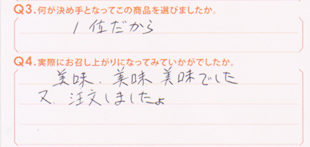 Q3.何が決め手となってこの商品を選びましたか。
1位だから
Q4.実際にお召し上がりになってみていかがでしたか。
美味、美味 美味でした
又、注文しましたよ